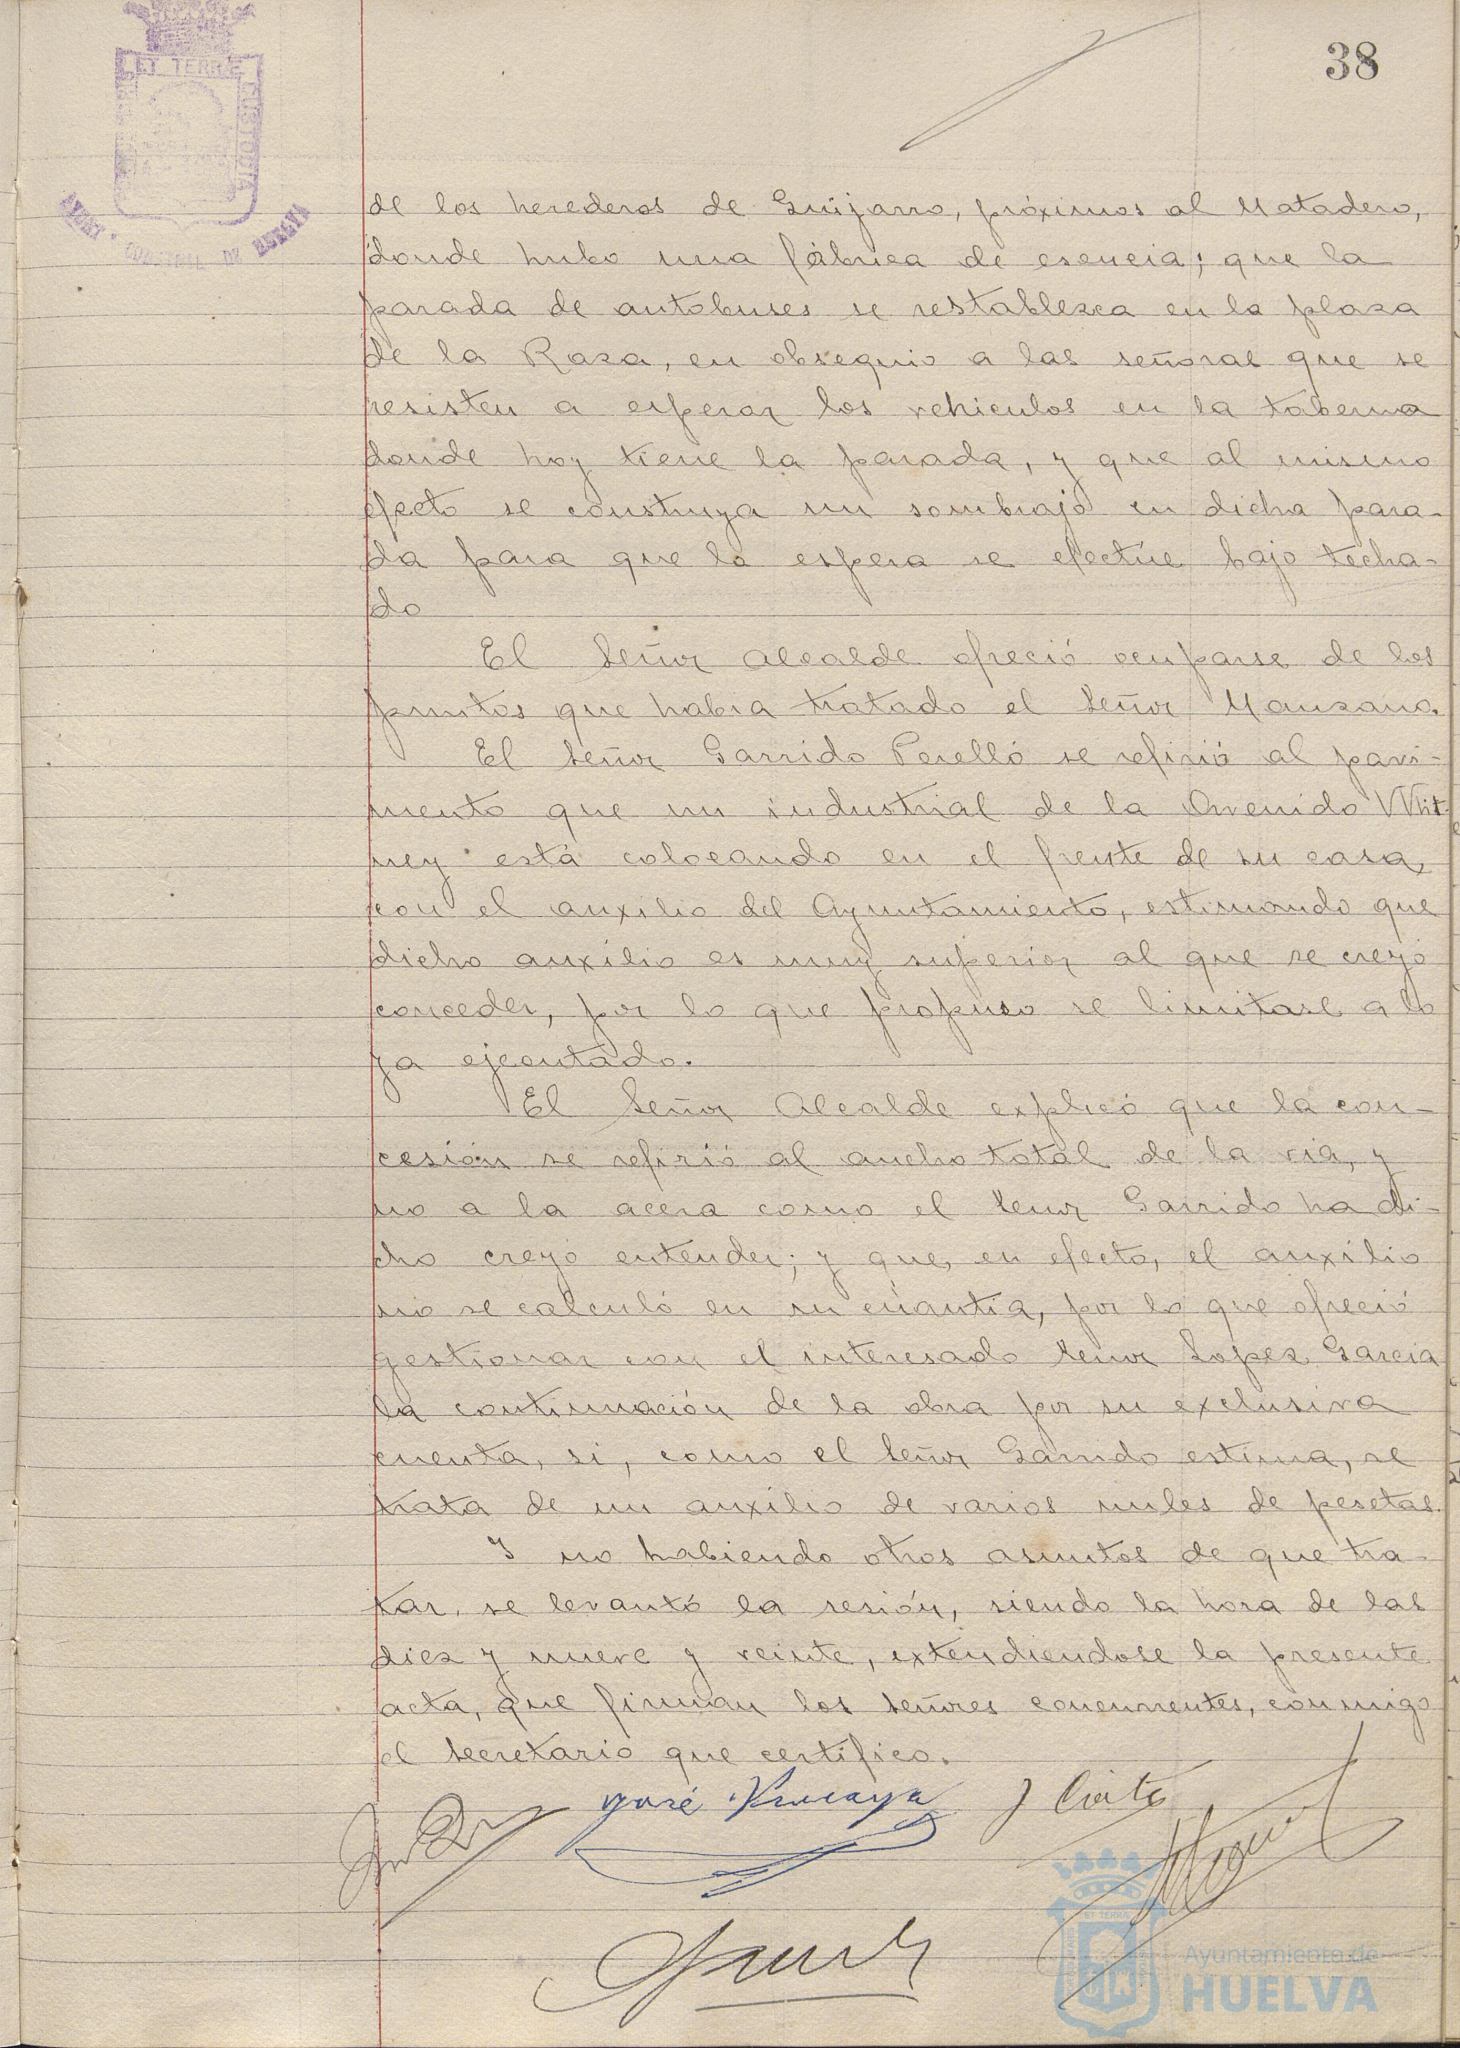 38
ET TERRÆ
CUSTODIA
AYUNT. CONSTNAL DE HUELVA
de los herederos de Guijarro, próximos al Matadero,
donde hubo una fábrica de esencia; que la
parada de autobuses se restablezca en la plaza
de la Raza, en obsequio a las señoras que se
resisten a esperar los vehiculos en la taberna
donde hoy tiene la parada, y que al mismo
efecto se construya un sombrajo en dicha para-
da para que la espera se efectúe bajo techa-
do
El Señor Alcalde ofreció ocuparse de los
puntos que habia tratado el Señor Manzano.
El Señor Garrido Perelló se refirió al pavi-
mento que un industrial de la Avenida Whit-
ney está colocando en el frente de su casa,
con el auxilio del Ayuntamiento, estimando que
dicho auxilio es muy superior al que se creyó
conceder, por lo que propuso se limitase a lo
ya ejecutado.
El Señor Alcalde explicó que la con-
cesión se refirió al ancho total de la via, y
no a la acera como el Senor Garrido ha di-
cho creyó entender; y que, en efecto, el auxilio
no se calculó en su cuantia, por lo que ofreció
gestionar con el interesado Senor Lopez Garcia
la continuación de la obra por su exclusiva
cuenta, si, como el Señor Garrido estima, se
trata de un auxilio de varios miles de pesetas.
Y no habiendo otros asuntos de que tra-
tar, se levantó la sesión, siendo la hora de las
diez y nueve y veinte, extendiendose la presente
acta, que firman los Señores concurrentes, conmigo
el Secretario que certifico.
José
Ayuntamiento de
HUELVA